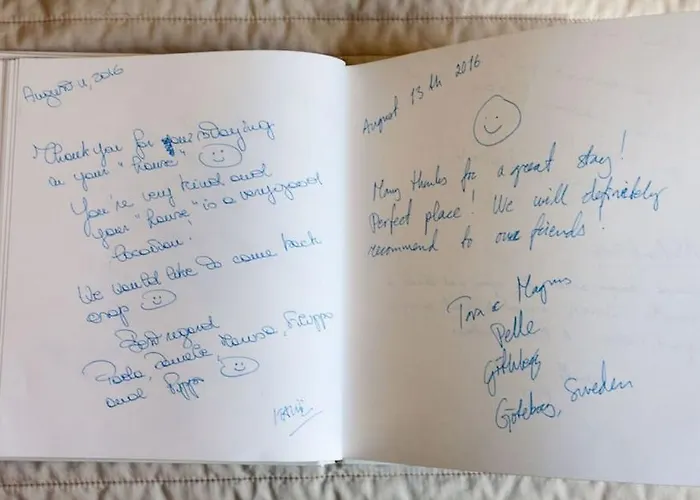 August 11, 2016
Thank you for your staying
in your "house"
You're very kind and
your "house" is a very good
location!
We would like to come back
asap
Best regard
Paola, Daniele,
and Pippo
August 13th 2016
Many thanks for a great stay!
Perfect place! We will definitely
recommend to our friends!
Magnus
Pelle
Göteborg, Sweden